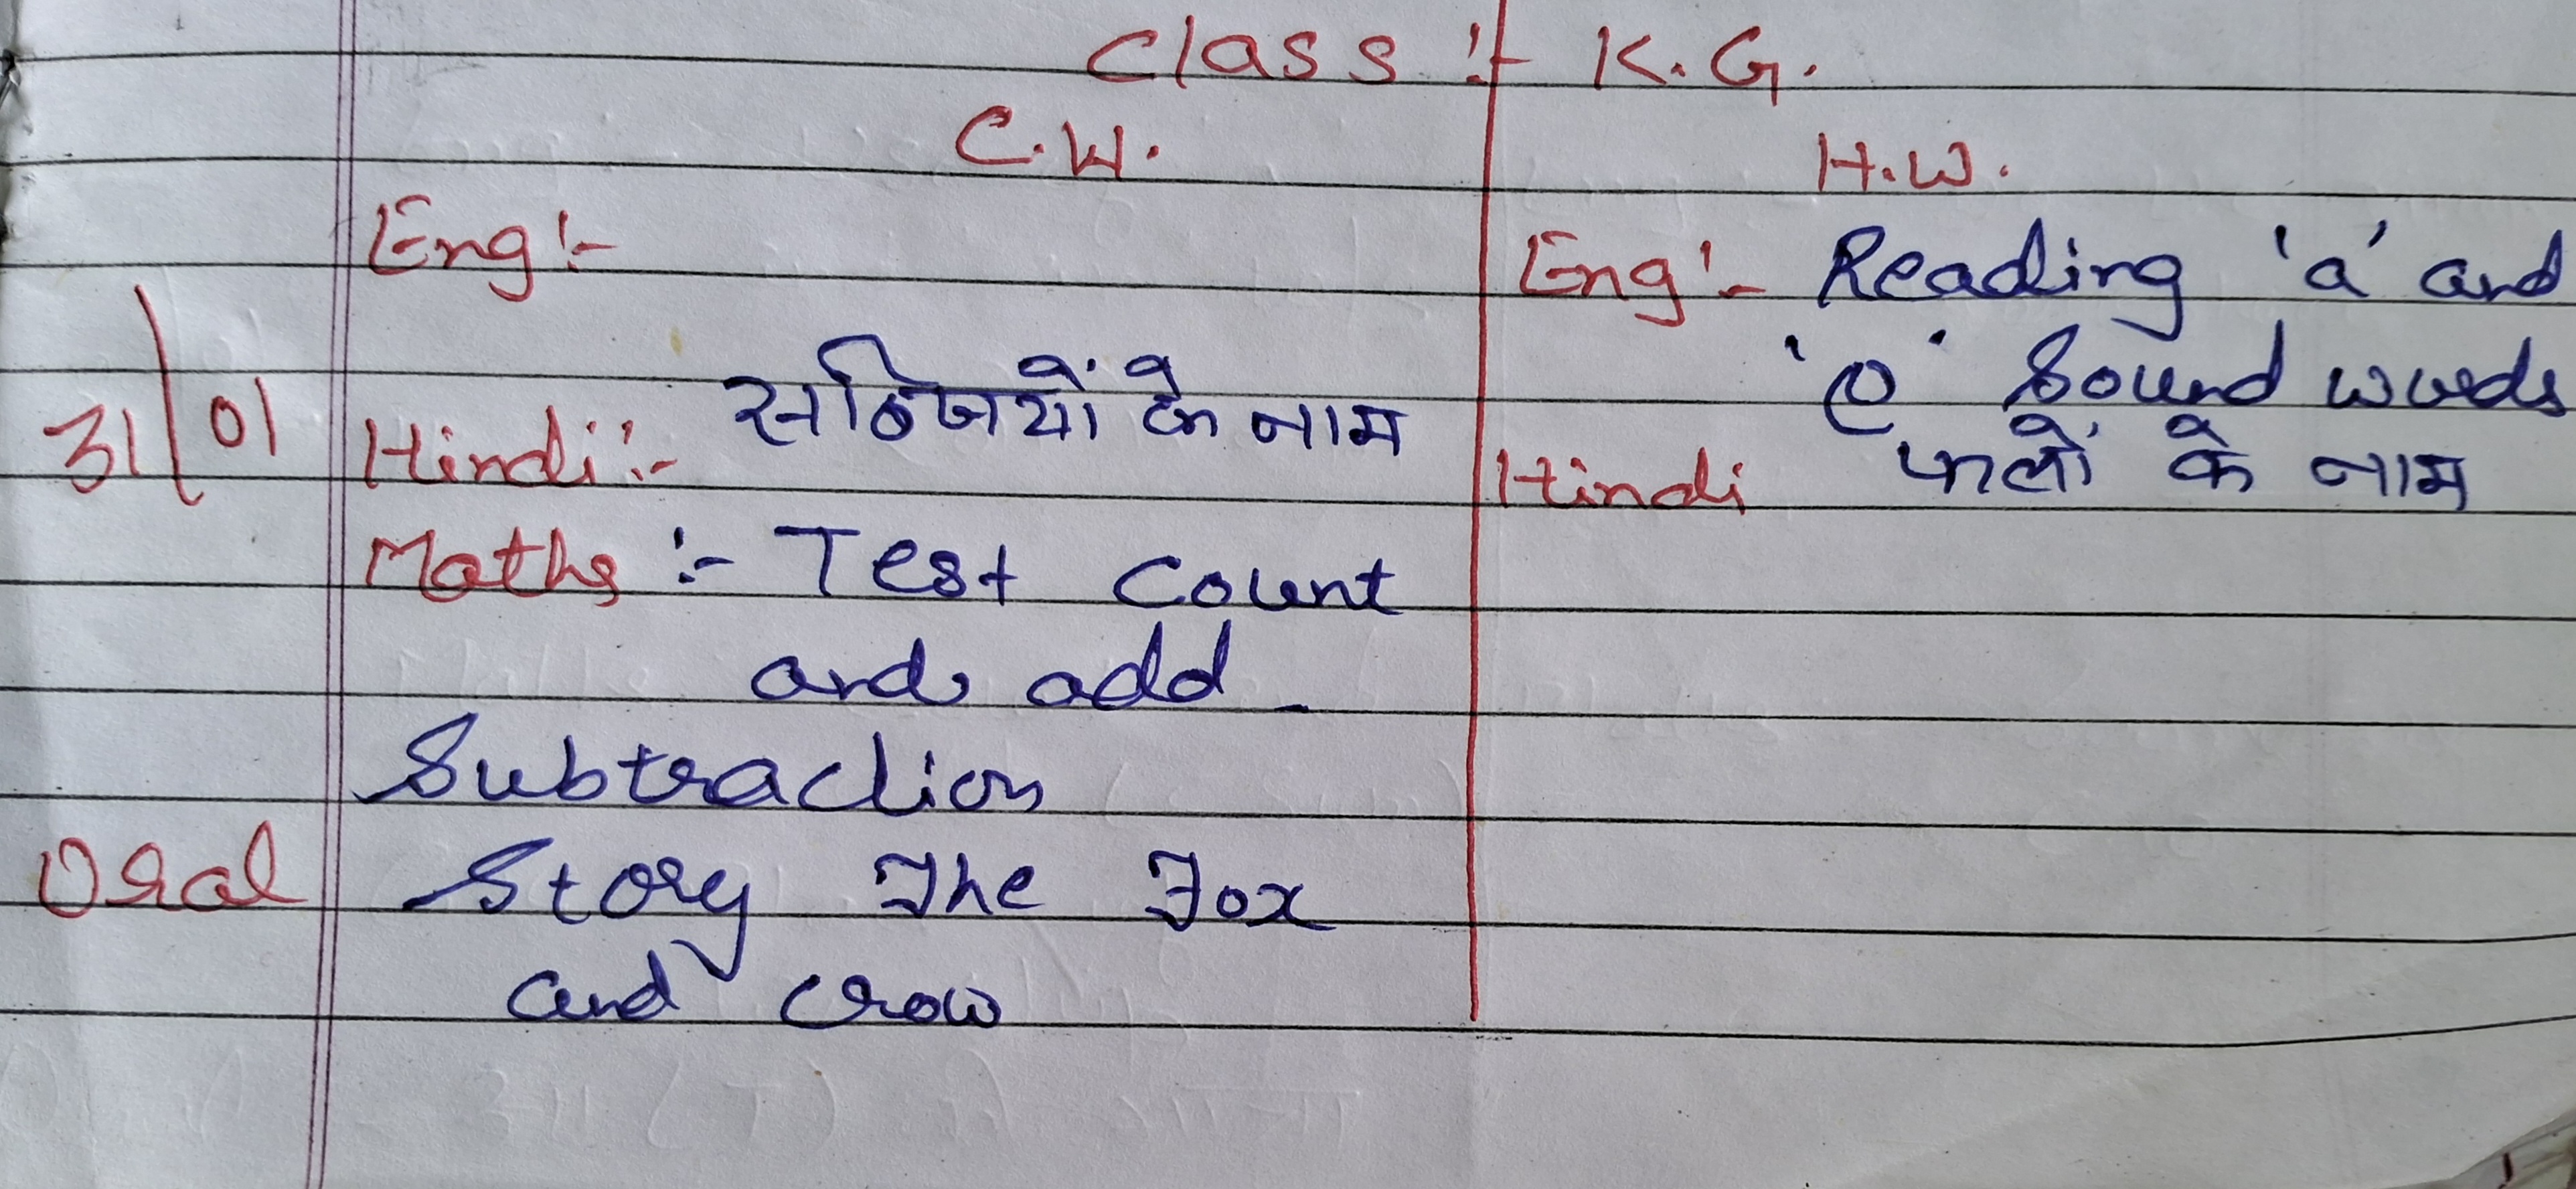 Class :- K.G.
C.W. H.W.
Eng :- Eng :- Reading 'a' and
'e' Sound words
31/01 Hindi :- सब्जियों के नाम Hindi फलों के नाम
Maths :- Test Count
and add
Subtraction
Oral Story The Fox
and Crow